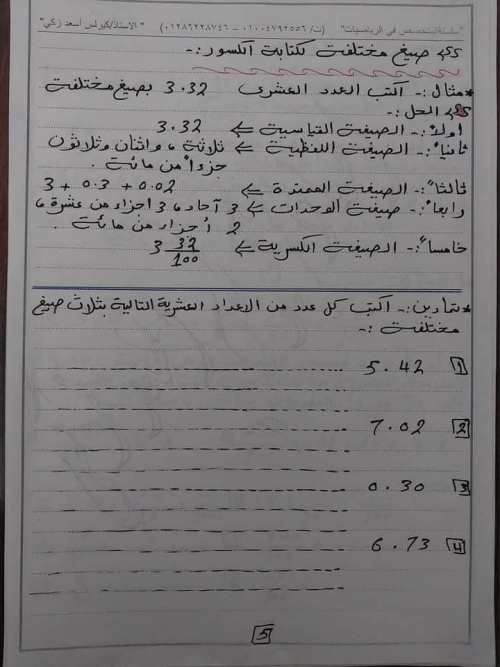 "سلسلة المتخصص في الرياضيات" (ت/ ٠١٢٠٠٤٧٩٢٥٥٦ – ٠١٢٨٦٢٢٨٧٤٦) "الأستاذ/كيرلس أسعد زكي"
صيغ مختلفة لكتابة الكسور :-
* مثال :- أكتب العدد العشرى 3.32 بصيغ مختلفة
الحل :-
أولاً :- الصيغة القياسية ⇐ 3.32
ثانياً :- الصيغة اللفظية ⇐ ثلاثة ، واثنان وثلاثون
جزءاً من مائة .
ثالثاً :- الصيغة الممتدة ⇐ 3 + 0.3 + 0.02
رابعاً :- صيغة الوحدات ⇐ 3 آحاد ، 3 أجزاء من عشرة ،
2 أجزاء من مائة .
خامساً :- الصيغة الكسرية ⇐ 3 32/100
* تمارين :- اكتب كل عدد من الاعداد العشرية التالية بثلاث صيغ
مختلفة :-
1 5.42
2 7.02
3 0.30
4 6.73
5